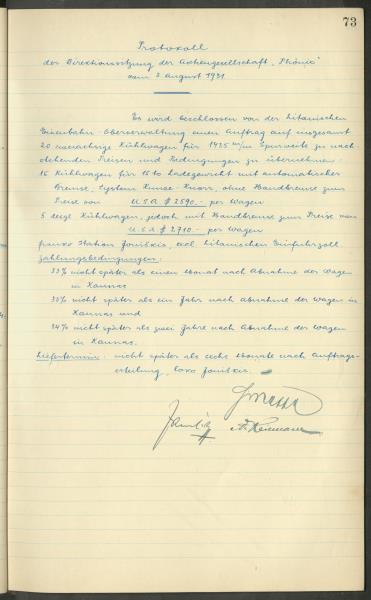 73
Protokoll
der Direktionssitzung der Actiengesellschaft "Phönix"
vom 3. August 1931
Es wird beschlossen von der litauischen
Eisenbahn-Oberverwaltung einen Auftrag auf insgesamt
20 zweiachsige Kühlwagen für 1435 m/m Spurweite zu nach
stehenden Preisen und Bedingungen zu übernehmen:
15 Kühlwagen für 15 to Ladegewicht mit automatischer
Bremse, System Kunze-Knorr, ohne Handbremse zum
Preise von U.S.A. $ 2590.- per Wagen
5 desgl. Kühlwagen, jedoch mit Handbremse zum Preise von
U.S.A. $ 2710.- per Wagen
franko Station Joniškis, excl. litauischen Einfuhrzoll.
Zahlungsbedingungen:
33% nicht später als einen Monat nach Abnahme der Wagen
in Kaunas
33% nicht später als ein Jahr nach Abnahme der Wagen in
Kaunas und
34% nicht später als zwei Jahre nach Abnahme der Wagen
in Kaunas.
Liefertermin: nicht später als sechs Monate nach Auftrags-
erteilung, loco Joniškis.